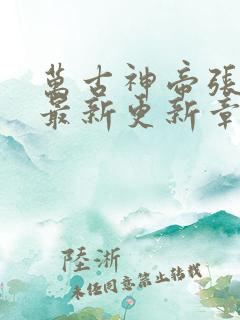 萬古神帝張
最新更新章
陸淅
未经同意禁止转载